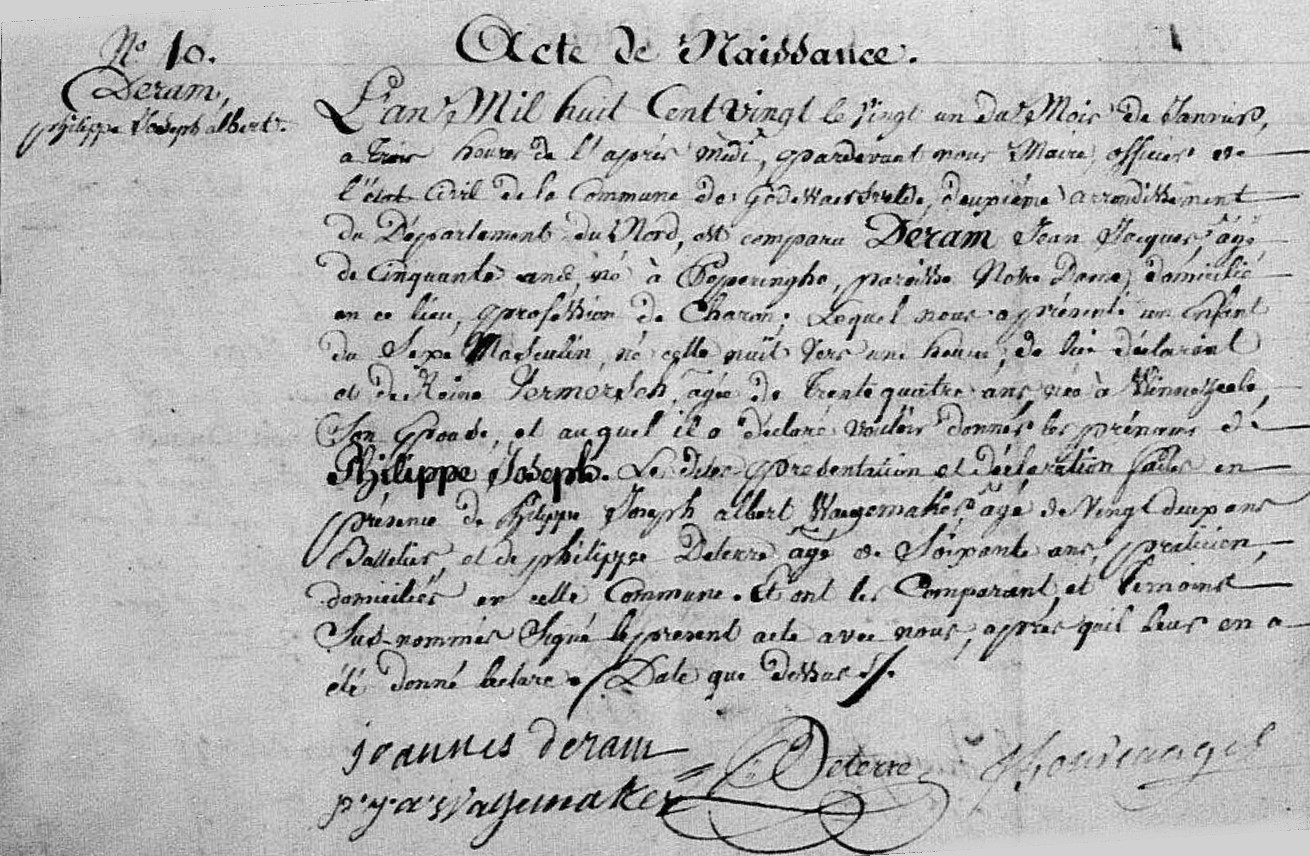 N.º 10.
Acte de Naissance.
Deram,
philippe Joseph albert.
L'an Mil huit Cent vingt le vingt un du Mois de Janvier,
a trois heures de l'après midi, pardevant nous Maire, officier de
l'état Civil de la Commune de Godewaersvelde, deuxième arrondissement
du Département du Nord, est comparu Déram Jean Jacques, agé
de Cinquante ans, né à Poperinghe, paroisse Notre Dame, domicilié
en ce lieu, profession de Charon; Lequel nous a présenté un Enfant
du Sexe Masculin, né cette nuit vers une heure, de lui déclarant
et de Reine Vermersch, agée de Trente quatre ans, née à Winnezeele,
Son Epouse, et auquel il a déclaré vouloir donner les prénoms de
Philippe Joseph. Les dites presentation et déclaration faites en
présence de Philippe Joseph albert Wagemaker agé de Vingt deux ans
Battelier, et de philippe Deterre agé de Soixante ans, praticien,
domiciliés en cette Commune. Et ont les Comparant et temoins
Sus-nommés Signé le present acte avec nous, après qu'il leur en a
été donné lecture. Date que dessus
joannes deram
Deterre
p. j. a. Wagemaker